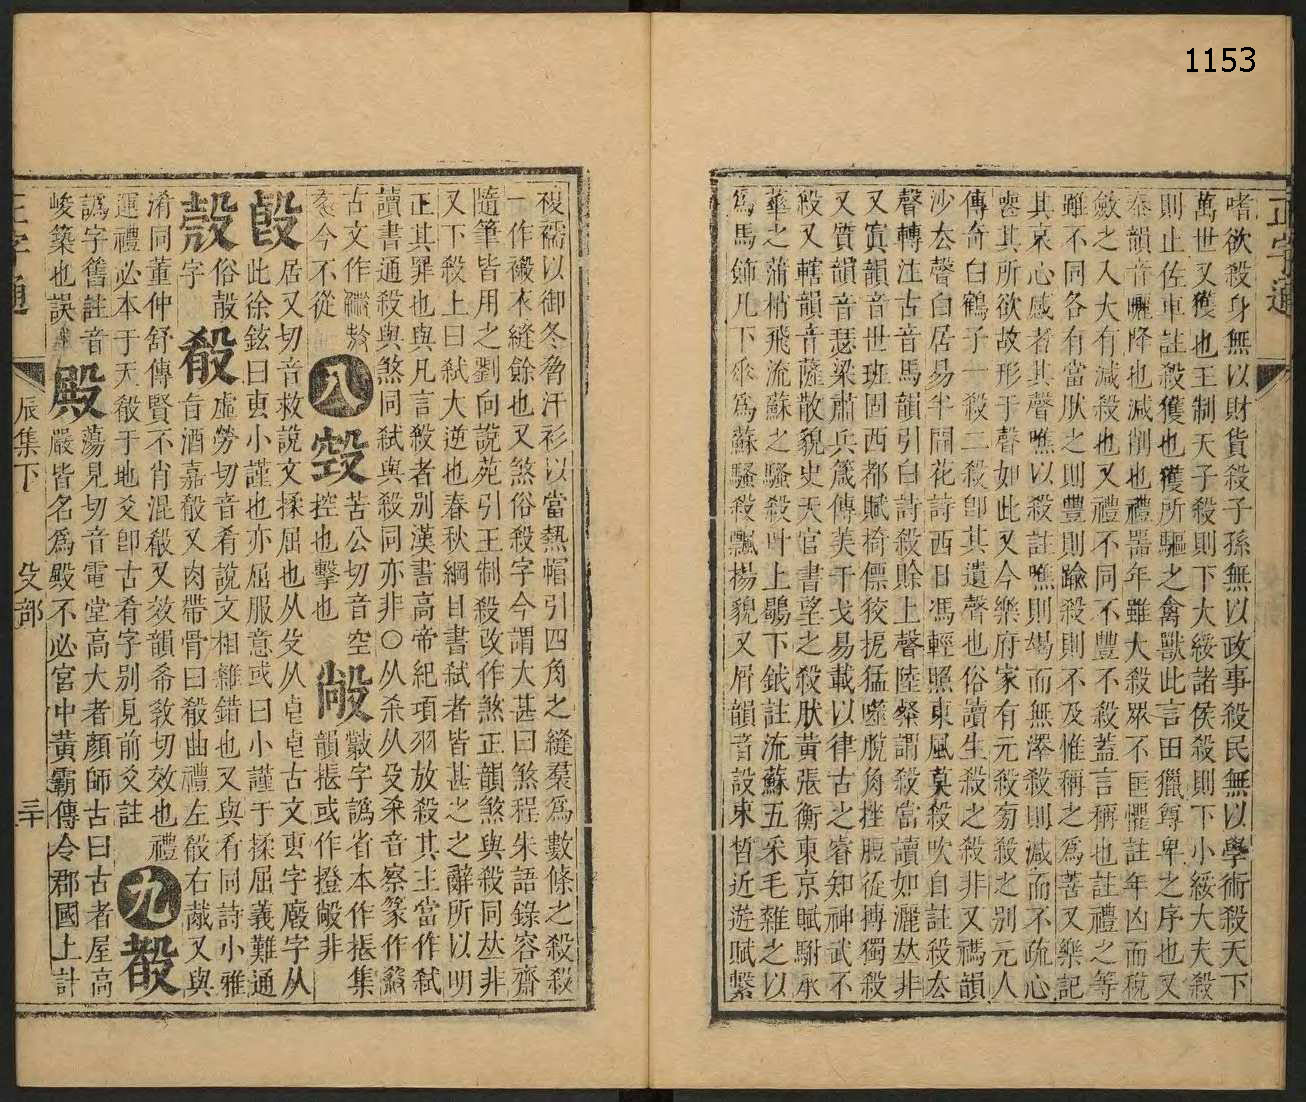 1153
正字通
嗜欲殺身無以財貨殺子孫無以政事殺民無以學術殺天下
萬世又獲也王制天子殺則下大綏諸侯殺則下小綏大夫殺
則止佐車註殺獲也獲所驅之禽獸此言田獵尊卑之序也又
泰韻音曬降也減削也禮器年雖大殺眾不匡懼註年凶而稅
斂之入大有減殺也又禮不同不豐不殺蓋言稱也註禮之等
雖不同各有當肰之則豐則踰殺則不及惟稱之爲善又樂記
其哀心感者其聲噍以殺註噍則竭而無澤殺則減而不疏心
喪其所欲故形于聲如此又今樂府家有元殺芻殺之别元人
傳奇白鶴子一殺二殺卽其遺聲也俗讀生殺之殺非又禡韻
沙去聲白居易半開花詩西日馮輕照東風莫殺吹自註殺去
聲轉注古音馬韻引白詩殺賒上聲陸粲謂殺當讀如灑𠀤非
又寘韻音世班固西都賦掎僄狡扼猛噬脫角挫脰從搏獨殺
又質韻音瑟梁肅兵箴傳美干戈易載以律古之睿知神武不
殺又轄韻音薩散貌史天官書望之殺肰黃張衡東京賦駙承
華之蒲梢飛流蘇之騷殺叶上鶡下鉞註流蘇五采毛雜之以
爲馬飾几下垂爲蘇騷殺飄揚貌又屑韻音設束皙近遊賦繫
複襦以御冬脅汗衫以當熱帽引四角之縫羣爲數條之殺殺
一作襒衣縫餘也又煞俗殺字今謂大甚曰煞程朱語錄容齊
隨筆皆用之劉向說苑引王制殺改作煞正韻煞與殺同𠀤非
又下殺上曰弑大逆也春秋綱目書弑者皆甚之之辭所以明
正其罪也與凡言殺者别漢書高帝紀項羽放殺其主當作弑
讀書通殺與煞同弑與殺同亦非〇从杀从殳杀音察篆作
古文作
今不從
八
㲁 苦公切音空控也擊也
敞 𣪯字譌省本作挋集韻挋或作撜敞非
㲃 居又切音救說文揉屈也从殳从皀皀古文叀字廄字从
此徐鉉曰叀小謹也亦屈服意或曰小謹于揉屈義難通
㱿 俗㱿字
殽 虛勞切音肴說文相雜錯也又與肴同詩小雅
旨酒嘉殽又肉帶骨曰殽曲禮左殽右胾又與
淆同董仲舒傳賢不肖混殽又效韻希敎切效也禮
運禮必本于天殽于地爻卽古肴字别見前爻註
九
譌字舊註音
峻築也誤
殿 蕩見切音電堂高大者顏師古曰古者屋高
嚴皆名爲殿不必宮中黃霸傳令郡國上計
正字通
辰集下
殳部
三十